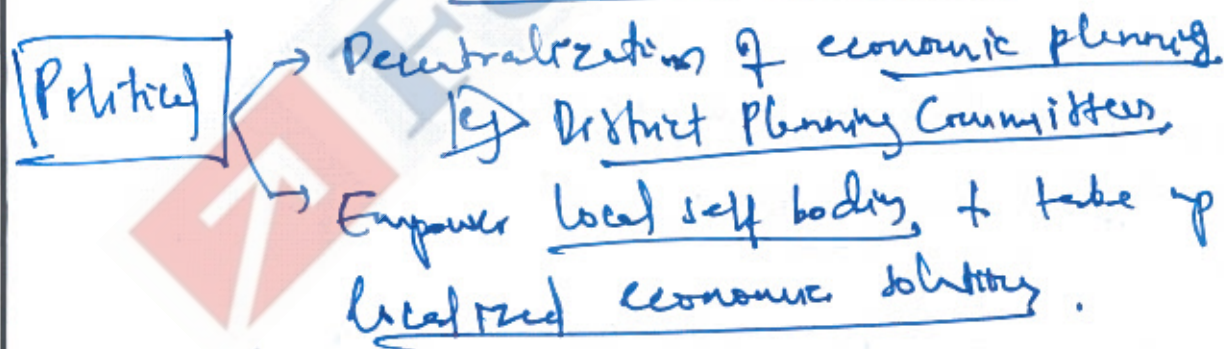 Political → Decentralization of economic planning.
eg District Planning Committees.
→ Empower local self bodies, to take up
localized economic solutions.